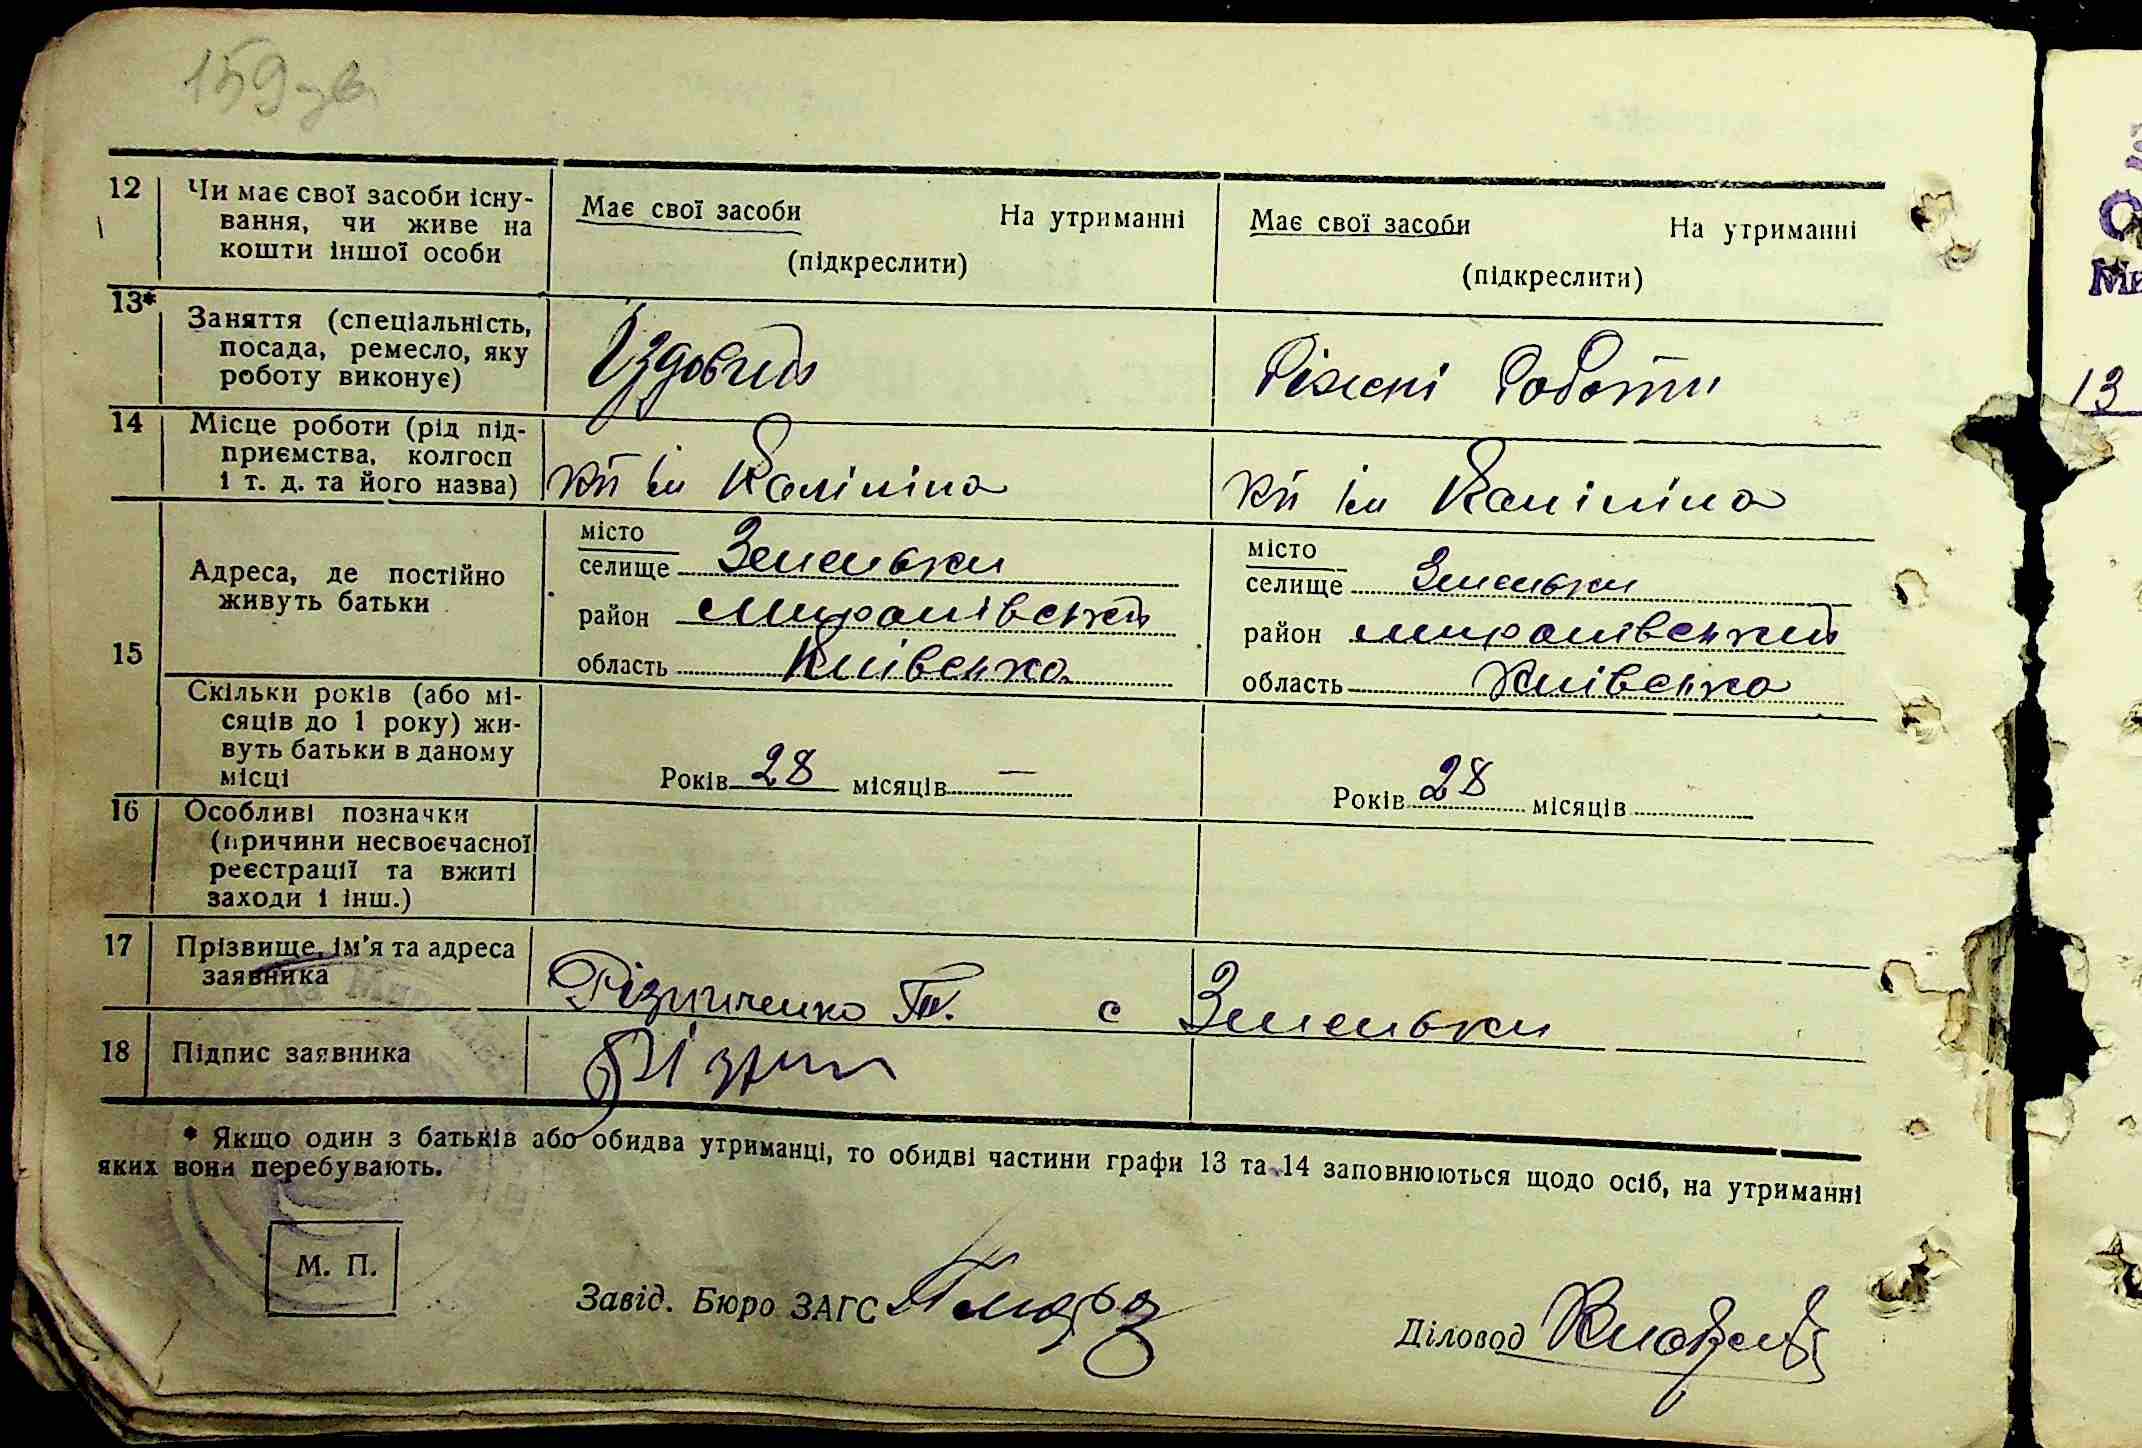 159 зв
12 Чи має свої засоби існу-
вання, чи живе на
кошти іншої особи
Має свої засоби На утриманні
(підкреслити)
Має свої засоби На утриманні
(підкреслити)
13* Заняття (спеціальність,
посада, ремесло, яку
роботу виконує)
Їздовий
Різені Роботи
14 Місце роботи (рід під-
приємства, колгосп
і т. д. та його назва)
кп ім Калініна
кп ім Калініна
15 Адреса, де постійно
живуть батьки
місто
селище Зеленьки
район миронівский
область Київська
місто
селище Зеленьки
район миронівский
область Київська
Скільки років (або мі-
сяців до 1 року) жи-
вуть батьки в даному
місці
Років 28 місяців —
Років 28 місяців
16 Особливі позначки
(причини несвоєчасної
реєстрації та вжиті
заходи і інш.)
17 Прізвище, ім'я та адреса
заявника
Різниченко Т. с Зеленьки
18 Підпис заявника
Різни
* Якщо один з батьків або обидва утриманці, то обидві частини графи 13 та 14 заповнюються щодо осіб, на утриманні
яких вони перебувають.
М. П.
Завід. Бюро ЗАГС
Діловод
13